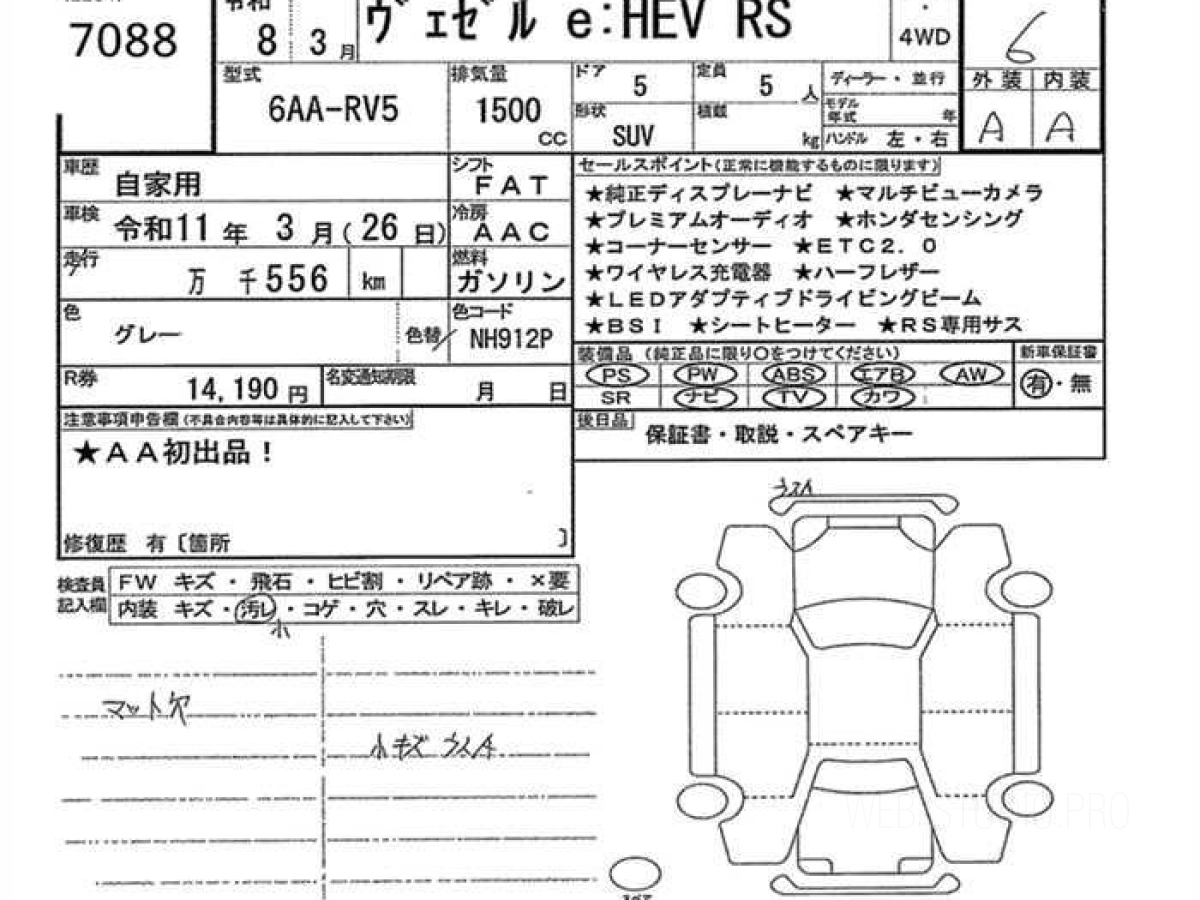 7088
令和 8 3月
ヴェゼル e:HEV RS
・
4WD
6
外装 内装
A A
型式 6AA-RV5
排気量 1500 CC
ドア 5
定員 5 人
形状 SUV
積載 kg
ディーラー・並行
モデル年式 年
ハンドル 左・右
車歴 自家用
シフト FAT
車検 令和11年 3月(26日)
冷房 AAC
走行 万 千556 km
燃料 ガソリン
色 グレー 色替
色コード NH912P
R券 14,190円
名変通知期限 月 日
セールスポイント(正常に機能するものに限ります)
★純正ディスプレーナビ ★マルチビューカメラ
★プレミアムオーディオ ★ホンダセンシング
★コーナーセンサー ★ETC2.0
★ワイヤレス充電器 ★ハーフレザー
★LEDアダプティブドライビングビーム
★BSI ★シートヒーター ★RS専用サス
装備品 (純正品に限り○をつけてください)
新車保証書
PS PW ABS エアB AW
有・無
SR ナビ TV カワ
後日品
保証書・取説・スペアキー
注意事項申告欄(不具合内容等は具体的に記入して下さい)
★AA初出品!
修復歴 有〔箇所 〕
検査員記入欄
FW キズ・飛石・ヒビ割・リペア跡・×要
内装 キズ・汚レ・コゲ・穴・スレ・キレ・破レ
小
マット欠
小キズ ウスイ
ウスイ
スペア
WEBESTUTO.PRO